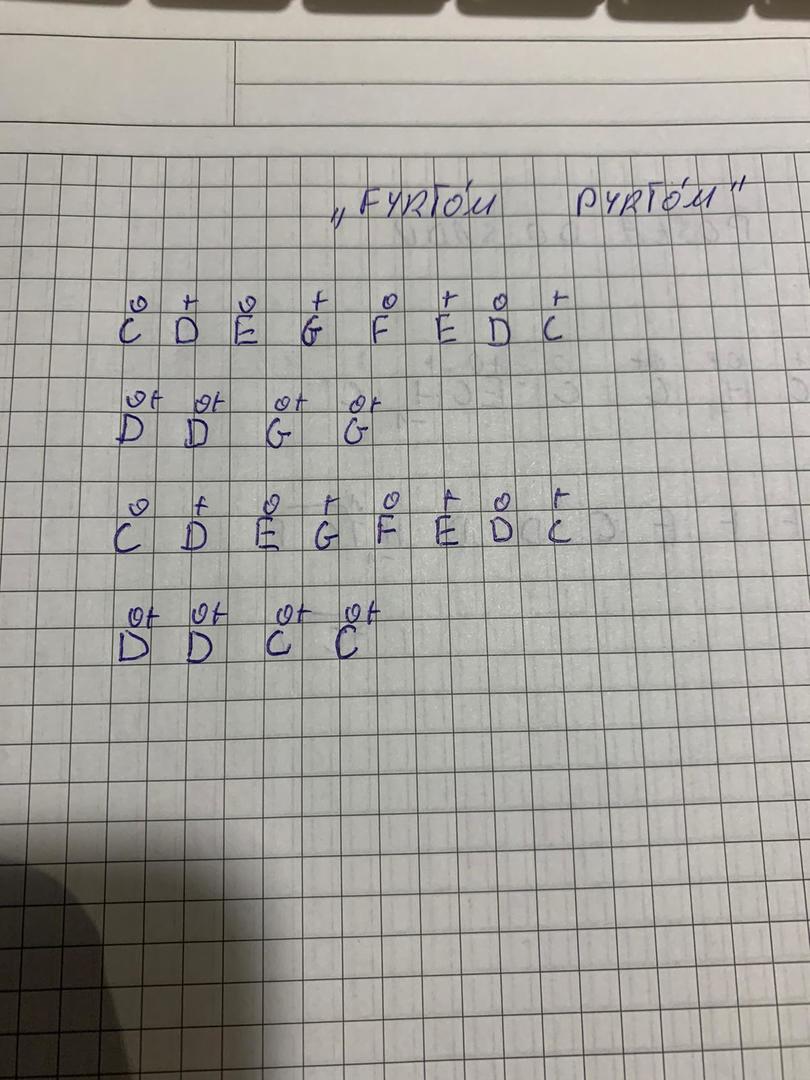 „FYRTÓM PYRTÓM"
o + o + o + o +
C D E G F E D C
o+ o+ o+ o+
D D G G
o + o + o + o +
C D E G F E D C
o+ o+ o+ o+
D D C C